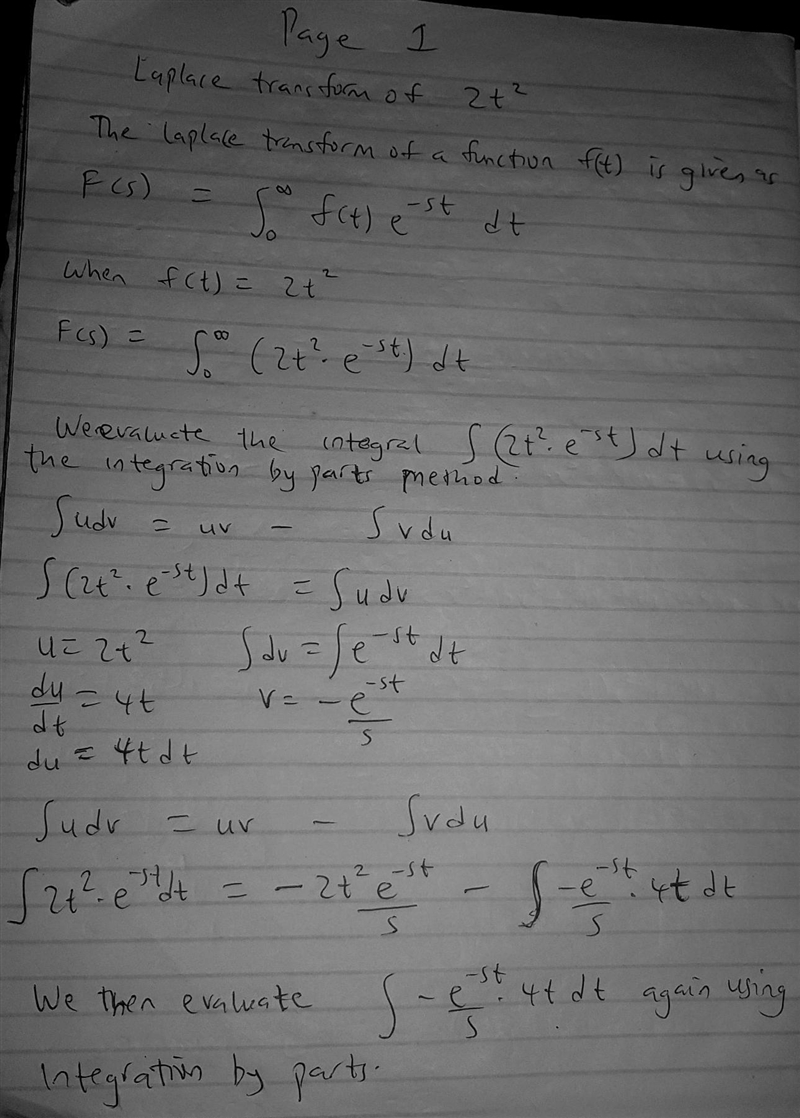 Page 1
Laplace transform of 2t²
The laplace transform of a function f(t) is given as
F(s) = ∫₀^∞ f(t) e^-st dt
When f(t) = 2t²
F(s) = ∫₀^∞ (2t². e^-st) dt
We evaluate the integral ∫(2t². e^-st) dt using
the integration by parts method.
∫udv = uv - ∫vdu
∫(2t². e^-st)dt = ∫udv
u = 2t² ∫dv = ∫e^-st dt
du/dt = 4t v = -e^-st/s
du = 4t dt
∫udv = uv - ∫vdu
∫2t². e^-st dt = -2t² e^-st/s - ∫-e^-st/s. 4t dt
We then evaluate ∫-e^-st/s. 4t dt again using
Integration by parts.